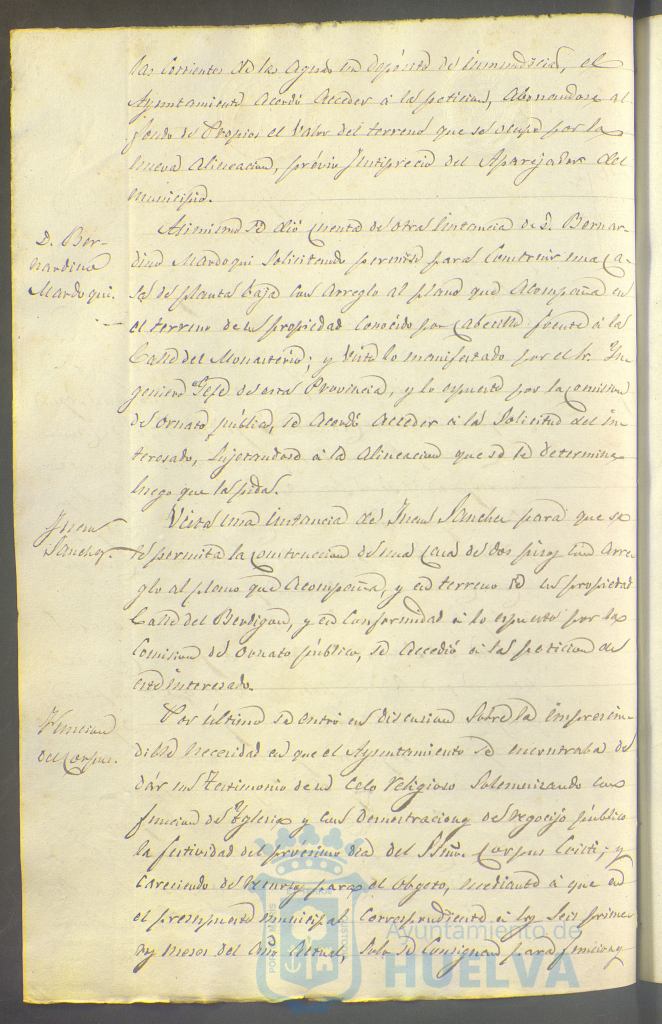 las corrientes de las aguas en deposito de inmundicias, el
Ayuntamiento acordó acceder á la peticion, abonandose al
fondo de Propios el valor del terreno que se ocupe por la
nueva alineacion, prévio justiprecio del Aparejador del
municipio.
D. Ber-
nardino
Mardoqui.
Asimismo se dió cuenta de otra instancia de D. Bernar
dino Mardoqui solicitando permiso para construir una ca
sa de planta baja con arreglo al plano que acompaña en
el terreno de su propiedad conocido por Cabecillo frente á la
Calle del Monasterio; y visto lo manifestado por el Sr. In
geniero Gefe de esta Provincia, y lo espuesto por la comision
de Ornato público, se acordó acceder á la solicitud del in
teresado, sujetandose á la alineacion que se le determine
luego que la pida.
Juan
Sanchez.
Vista una instancia de Juan Sanchez para que se
le permita la construccion de una casa de dos pisos con arre
glo al plano que acompaña, y en terreno de su propiedad
Calle del Berdigon, y en conformidad á lo espuesto por la
Comision de Ornato público, se accedió á la peticion de
este interesado.
Funcion
del Corpus.
Por último se entró en discusion sobre la imprescin
dible necesidad en que el Ayuntamiento se encontraba de
dár un testimonio de su celo religioso solemnizando con
funcion de Yglesia y con demostraciones de regocijo público
la festividad del procsimo dia del Ssmo. Corpus Cristi; y
careciendo de recursos para el obgeto, mediante á que en
el presupuesto municipal correspondiente á los seis prime
ros meses del año actual, solo se consignan para funciones
Ayuntamiento de
HUELVA